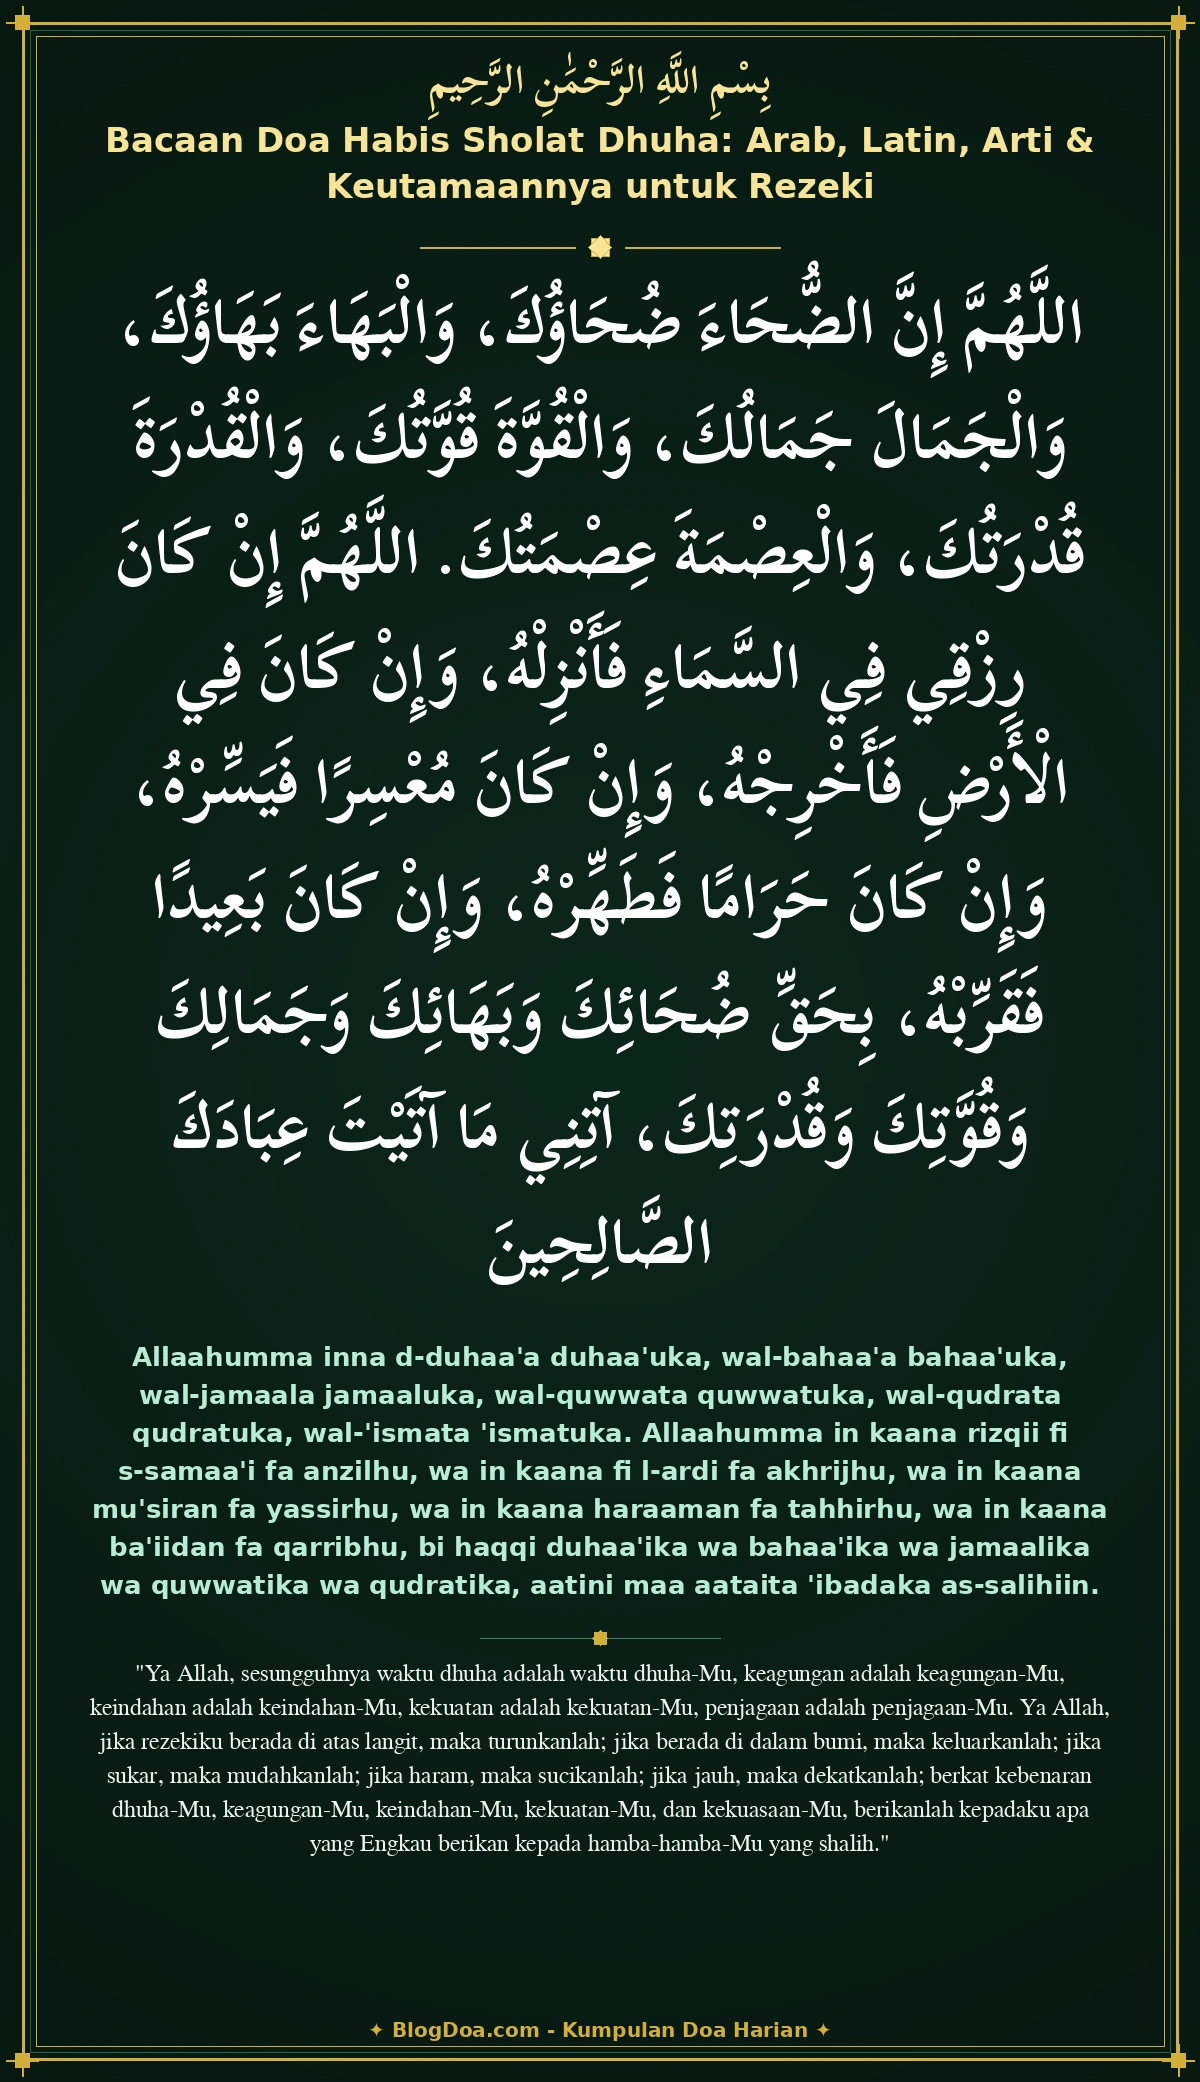 بِسْمِ اللَّهِ الرَّحْمَٰنِ الرَّحِيمِ
Bacaan Doa Habis Sholat Dhuha: Arab, Latin, Arti &
Keutamaannya untuk Rezeki
اللَّهُمَّ إِنَّ الضُّحَاءَ ضُحَاؤُكَ، وَالْبَهَاءَ بَهَاؤُكَ،
وَالْجَمَالَ جَمَالُكَ، وَالْقُوَّةَ قُوَّتُكَ، وَالْقُدْرَةَ
قُدْرَتُكَ، وَالْعِصْمَةَ عِصْمَتُكَ. اللَّهُمَّ إِنْ كَانَ
رِزْقِي فِي السَّمَاءِ فَأَنْزِلْهُ، وَإِنْ كَانَ فِي
الْأَرْضِ فَأَخْرِجْهُ، وَإِنْ كَانَ مُعْسِرًا فَيَسِّرْهُ،
وَإِنْ كَانَ حَرَامًا فَطَهِّرْهُ، وَإِنْ كَانَ بَعِيدًا
فَقَرِّبْهُ، بِحَقِّ ضُحَائِكَ وَبَهَائِكَ وَجَمَالِكَ
وَقُوَّتِكَ وَقُدْرَتِكَ، آتِنِي مَا آتَيْتَ عِبَادَكَ
الصَّالِحِينَ
Allaahumma inna d-duhaa'a duhaa'uka, wal-bahaa'a bahaa'uka,
wal-jamaala jamaaluka, wal-quwwata quwwatuka, wal-qudrata
qudratuka, wal-'ismata 'ismatuka. Allaahumma in kaana rizqii fi
s-samaa'i fa anzilhu, wa in kaana fi l-ardi fa akhrijhu, wa in kaana
mu'siran fa yassirhu, wa in kaana haraaman fa tahhirhu, wa in kaana
ba'iidan fa qarribhu, bi haqqi duhaa'ika wa bahaa'ika wa jamaalika
wa quwwatika wa qudratika, aatini maa aataita 'ibadaka as-salihiin.
"Ya Allah, sesungguhnya waktu dhuha adalah waktu dhuha-Mu, keagungan adalah keagungan-Mu,
keindahan adalah keindahan-Mu, kekuatan adalah kekuatan-Mu, penjagaan adalah penjagaan-Mu. Ya Allah,
jika rezekiku berada di atas langit, maka turunkanlah; jika berada di dalam bumi, maka keluarkanlah; jika
sukar, maka mudahkanlah; jika haram, maka sucikanlah; jika jauh, maka dekatkanlah; berkat kebenaran
dhuha-Mu, keagungan-Mu, keindahan-Mu, kekuatan-Mu, dan kekuasaan-Mu, berikanlah kepadaku apa
yang Engkau berikan kepada hamba-hamba-Mu yang shalih."
✦ BlogDoa.com - Kumpulan Doa Harian ✦